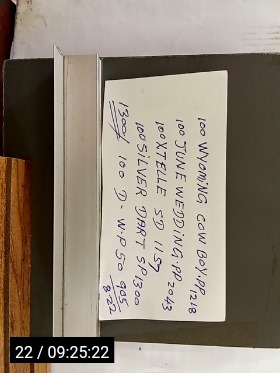 100 WYOMING COW BOY.PP1218
100 JUNE WEDDING.PP2043
100 XTELLE SD 1157
100 SILVER DART SP1300
1300/ 100 D. W.P 50 905
8-22
22 / 09:25:22